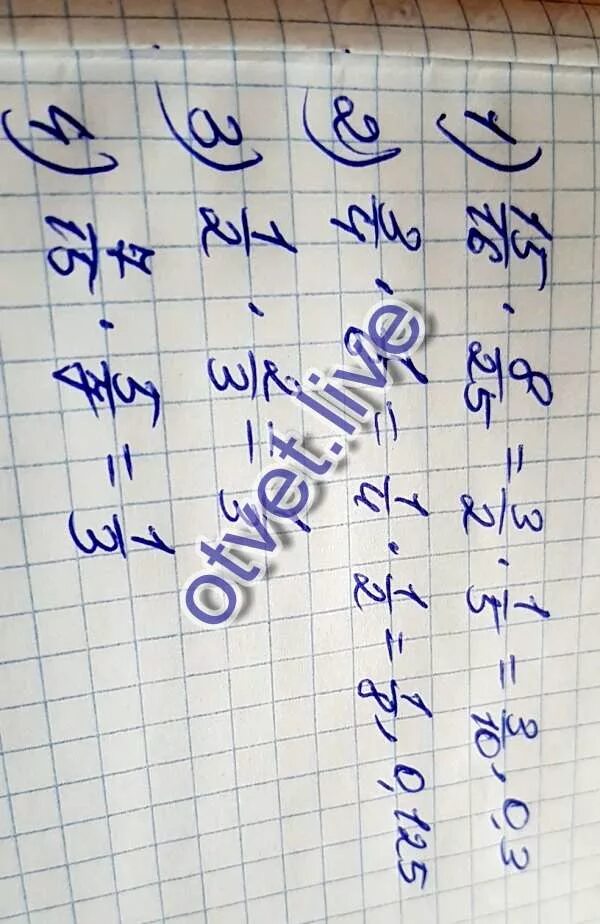 1) 15/16 · 8/25 = 3/2 · 1/5 = 3/10, 0,3
2) 3/4 · 1/ = 1/4 · 1/2 = 1/8, 0,125
3) 1/2 · 2/3 = 1/3
4) 7/15 · 5/7 = 1/3
otvet.live